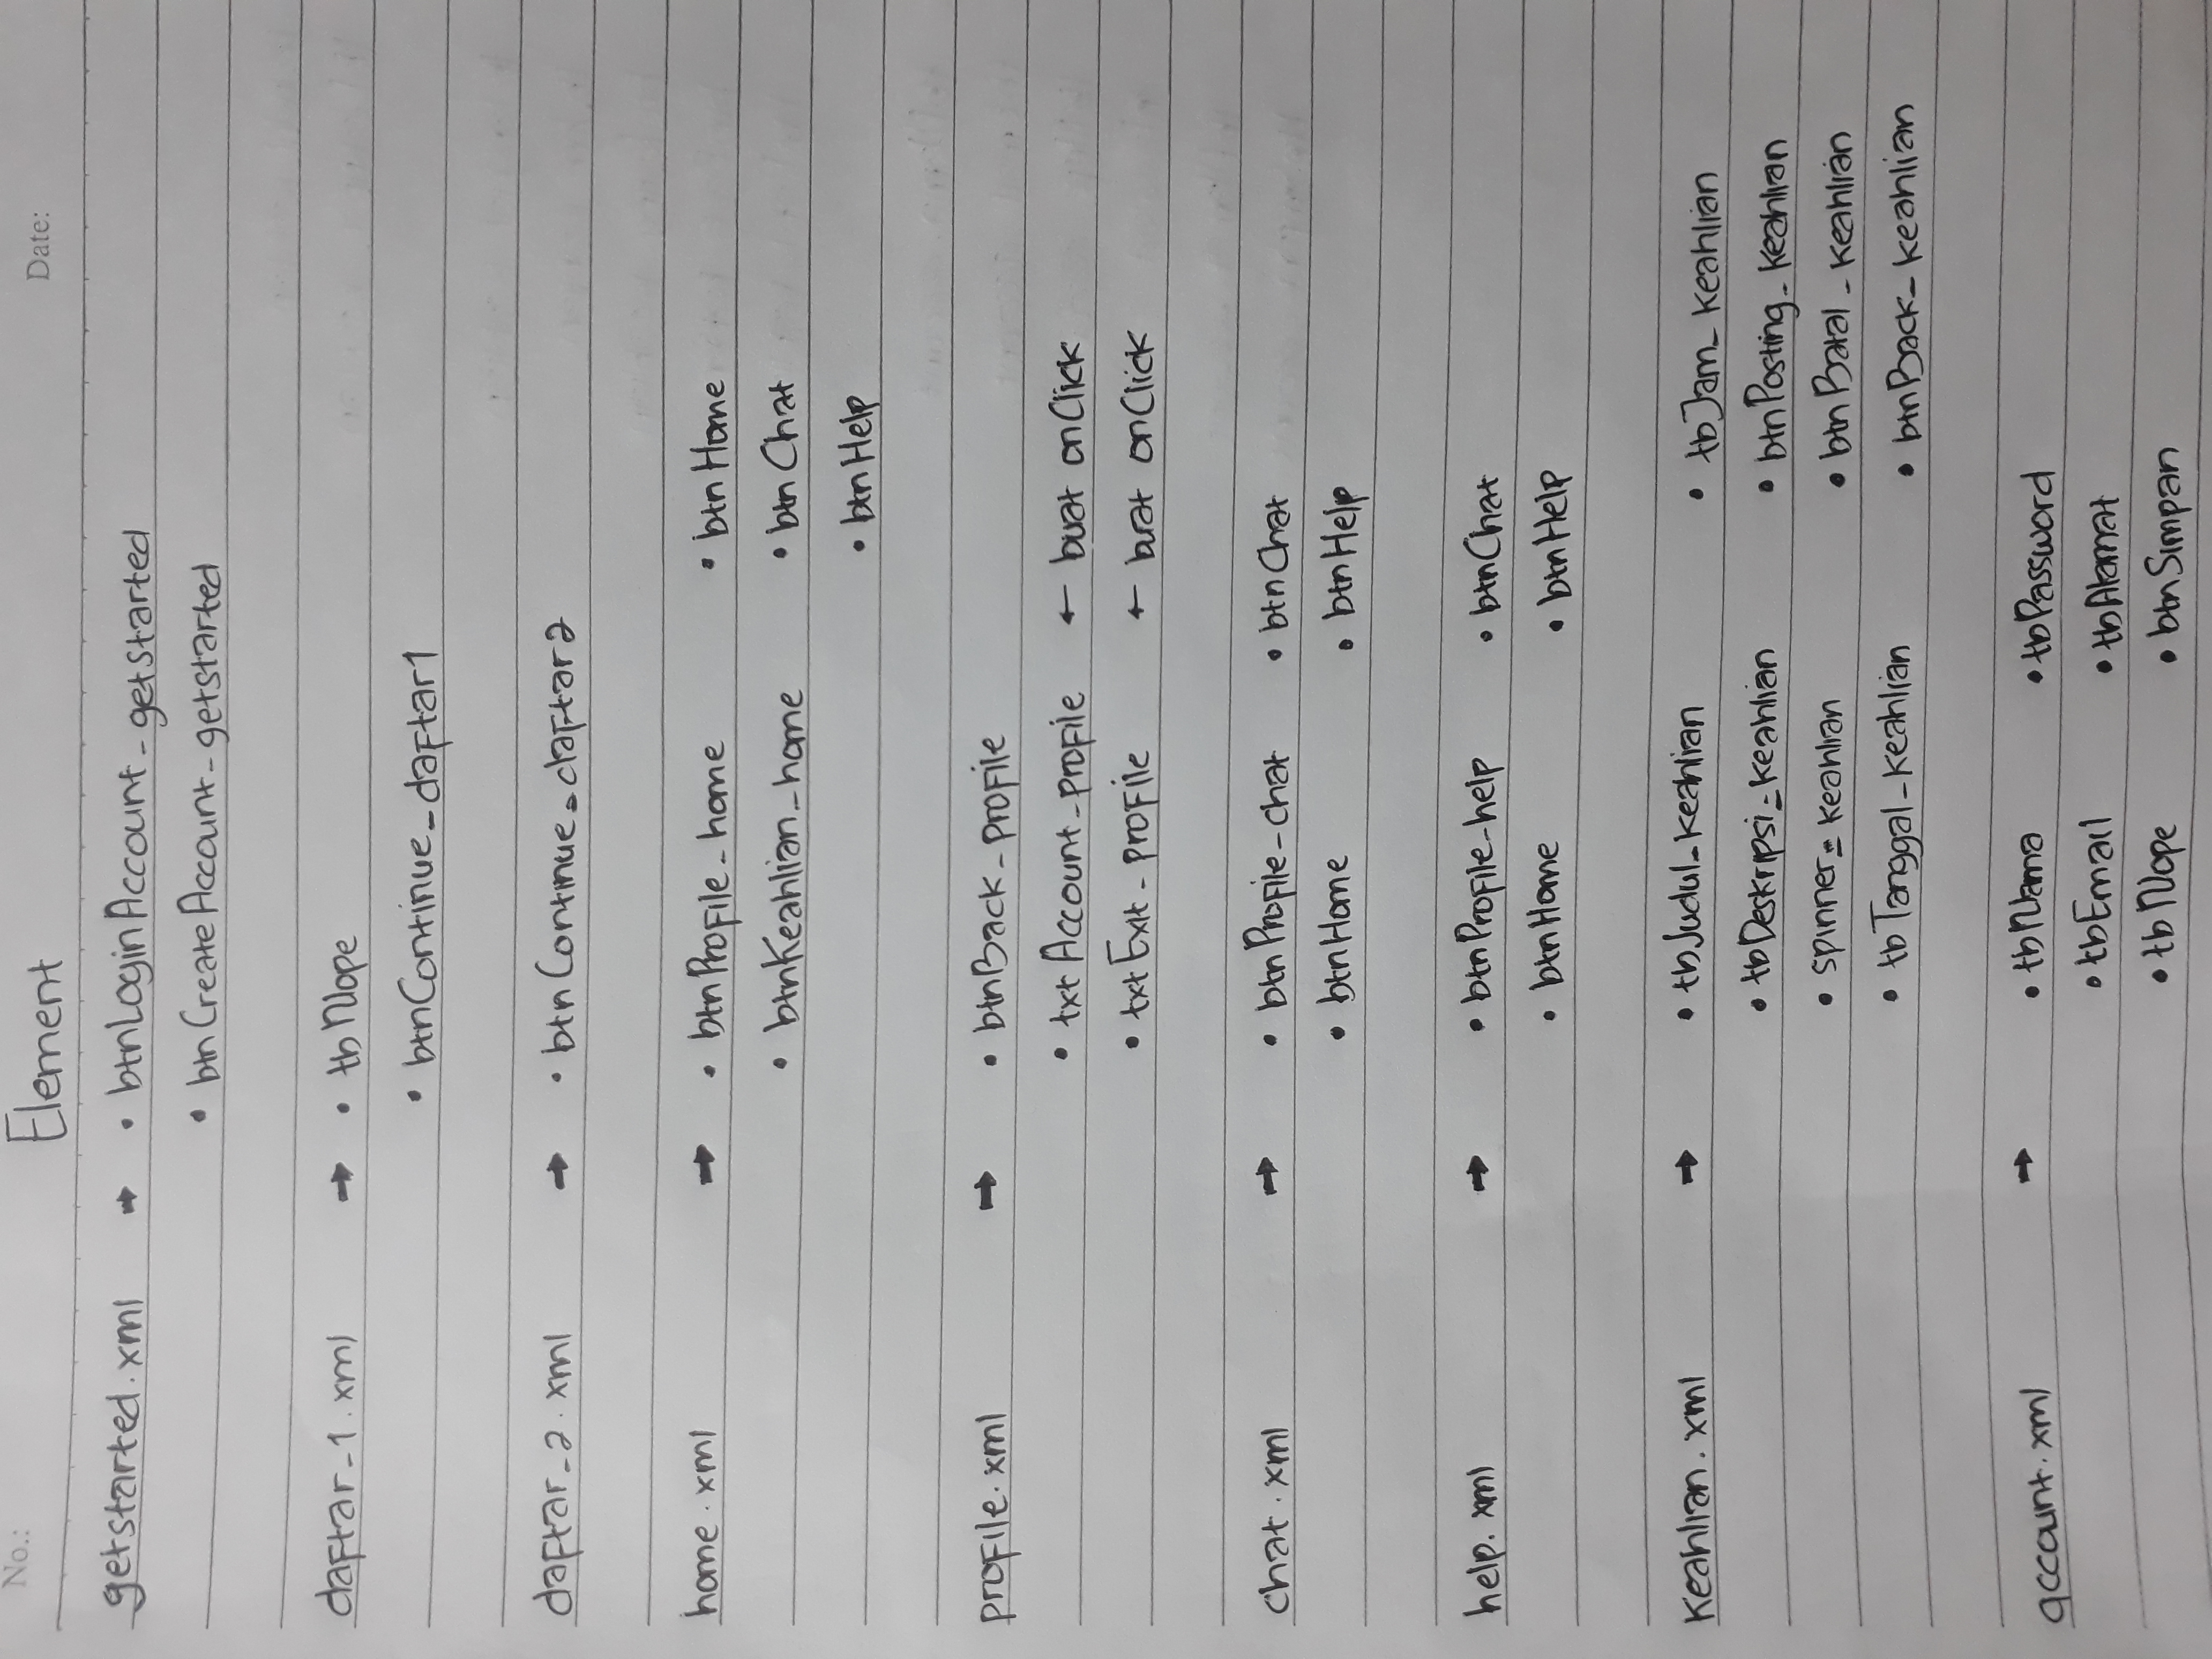 No.: Element Date:
getstarted.xml → • btnLoginAccount_getstarted
• btnCreateAccount_getstarted
daftar_1.xml → • tbNope
• btnContinue_daftar1
daftar_2.xml → • btnContinue_daftar2
home.xml → • btnProfile_home • btnHome
• btnKeahlian_home • btnChat
• btnHelp
profile.xml → • btnBack_profile
• txtAccount_profile ← buat onClick
• txtExit_profile ← buat onClick
chat.xml → • btnProfile_chat • btnChat
• btnHome • btnHelp
help.xml → • btnProfile_help • btnChat
• btnHome • btnHelp
keahlian.xml → • tbJudul_keahlian • tbJam_keahlian
• tbDeskripsi_keahlian • btnPosting_keahlian
• spinner_keahlian • btnBatal_keahlian
• tbTanggal_keahlian • btnBack_keahlian
account.xml → • tbNama • tbPassword
• tbEmail • tbAlamat
• tbNope • btnSimpan